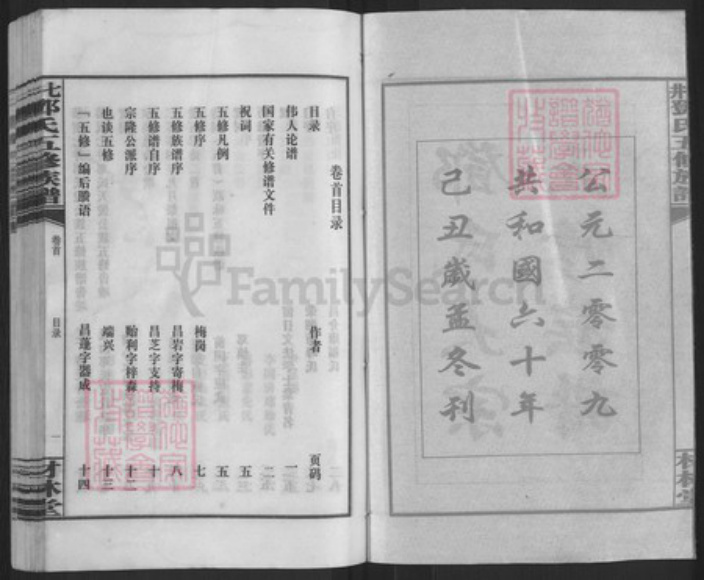 公元二零零九
共和國六十年
己丑歲孟冬刊
鄧氏五修族譜
卷首目录
目录 作者 页码
伟人论谱 一
国家有关修谱文件 二
祝词 五
五修凡例 五
五修序 梅岗 七
五修族谱序 昌岩字寄梅 八
五修谱自序 昌芝字支持 十
宗隆公派序 贻利字梓森 十二
也谈五修 端兴 十三
『五修』编后赘语 昌蓬字器成 十四
邓氏五修族谱
卷首
目录
一
林堂
FamilySearch